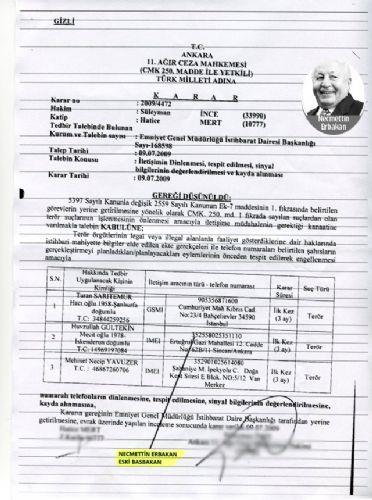 GİZLİ
T.C.
ANKARA
11. AĞIR CEZA MAHKEMESİ
(CMK 250. MADDE İLE YETKİLİ)
TÜRK MİLLETİ ADINA
K A R A R
Karar no : 2009/4472
Hakim : Süleyman İNCE (33990)
Katip : Hatice MERT (10777)
Tedbir Talebinde Bulunan
Kurum ve Talebin sayısı : Emniyet Genel Müdürlüğü İstihbarat Dairesi Başkanlığı
Sayı-168598
Talep Tarihi : 09.07.2009
Talebin Konusu : İletişimin Dinlenmesi, tespit edilmesi, sinyal
bilgilerinin değerlendirilmesi ve kayda alınması
Karar Tarihi : 09.07.2009
Necmettin
Erbakan
GEREĞİ DÜŞÜNÜLDÜ:
5397 Sayılı Kanunla değişik 2559 Sayılı Kanunun Ek-7 maddesinin 1. fıkrasında belirtilen
görevlerin yerine getirilmesine yönelik olarak CMK. 250. md. 1 fıkrada sayılan suçlardan olan
terör suçlarının işlenmesinin önlenmesi amacıyla iletişime müdahalenin gerektiği kanaatine
varılmakla talebin KABULÜNE;
Terör örgütlerinin legal veya illegal alanlarda faaliyet gösterdiklerine dair haklarında
istihbari mahiyette bilgiler elde edilen ekte gerekçeleri ile telefon numaraları belirtilen şahısların
gerçekleştirmeyi planladıkları/planlayacakları eylemlerinin önceden tespit edilerek engellenmesi
amacıyla
S.N. Hakkında Tedbir Uygulanacak Kişinin Kimliği İletişim aracının türü - telefon numarası Karar Süresi Suç Türü
1 Turan SARITEMUR Hacı oğlu 1958 Şanlıurfa doğumlu T.C: 34844259256 GSMI 905356871600 Cumhuriyet Mah Kıbrıs Cad. No:23/4 Bahçelievler 34590 İstanbul İlk Kez (3 ay) Terör
2 Huvzullah GÜLTEKİN Mecit oğlu 1978 İskenderun doğumlu TC: 14569197084 IMEI 352558025351110 Ertuğrul Gazi Mahallesi 12. Cadde No:62B/11 Sincan/Ankara İlk Kez (3 ay) Terör
3 Mehmet Necip YAVUZER T.C. : 46867260706 IMEI 352901025614080 M. İpekyolu C. Doğa Kent Sitesi E Blok. NO:5/12 Van Merker İlk Kez (3 ay) Terör
numaralı telefonların dinlenmesine, tespit edilmesine, sinyal bilgilerinin değerlendirilmesine,
kayda alınmasına,
Kararın gereğinin Emniyet Genel Müdürlüğü İstihbarat Daire Başkanlığı tarafından yerine
getirilmesine, evrak üzerinde yapılan inceleme sonucunda karar
NECMETTİN ERBAKAN
ESKİ BAŞBAKAN